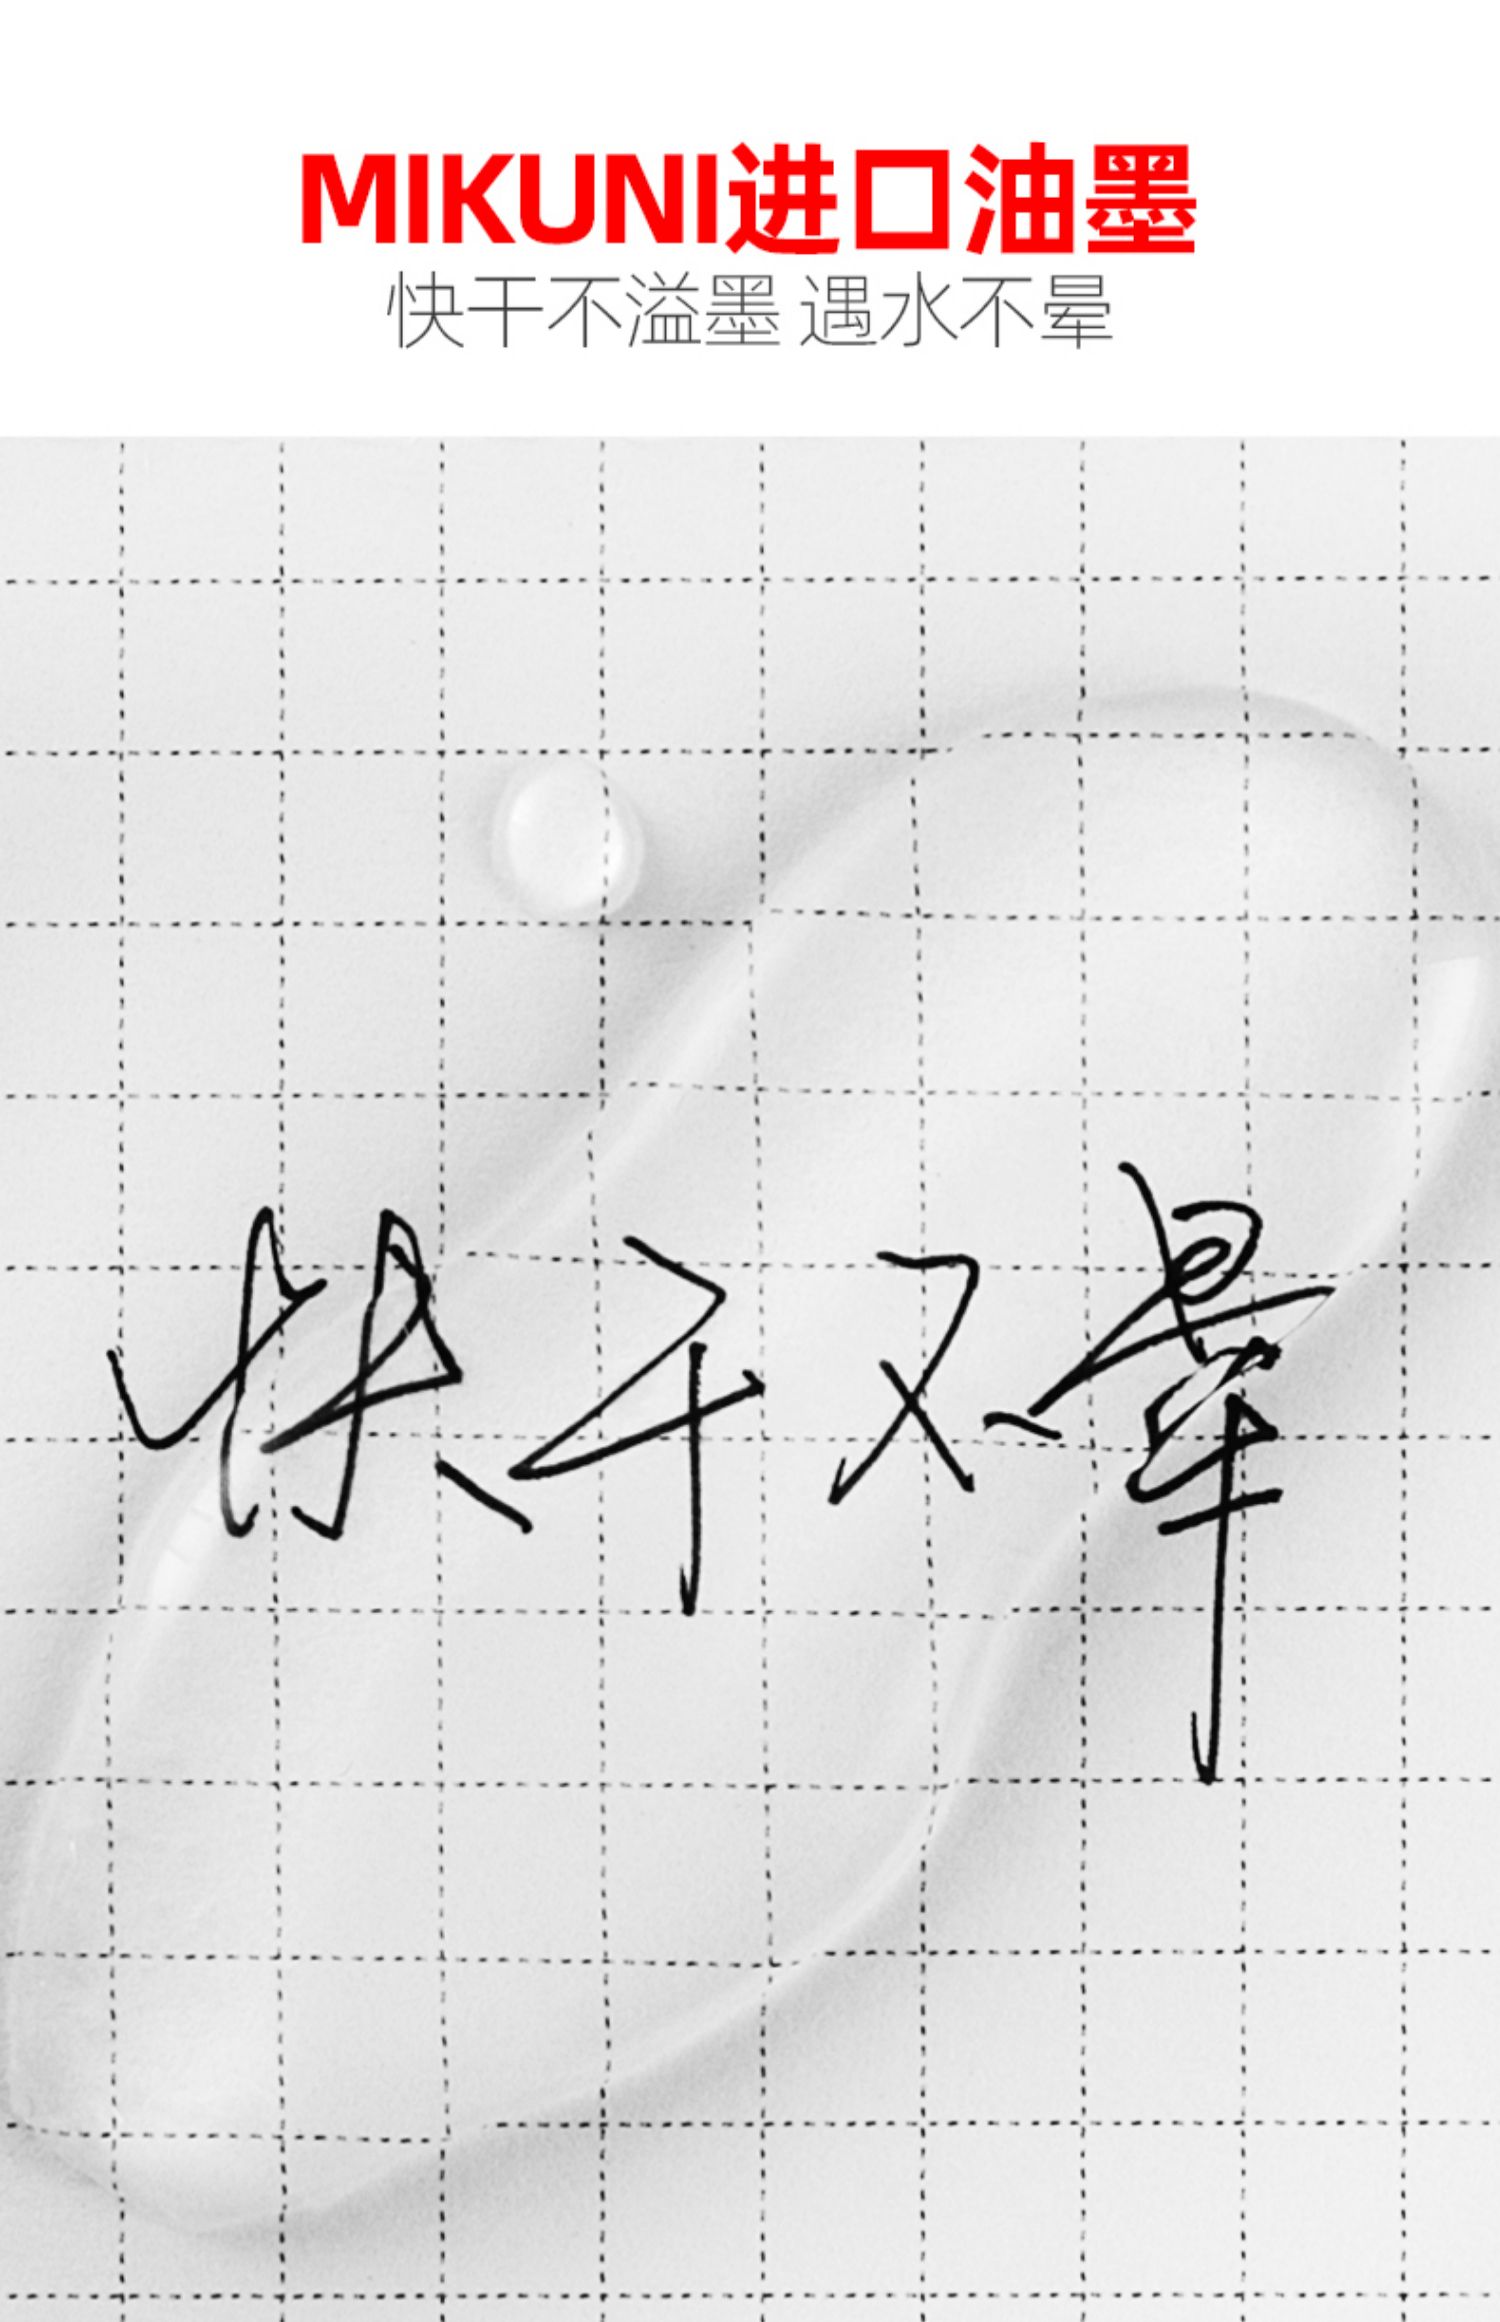 MIKUNI进口油墨
快干不溢墨 遇水不晕
快干不晕